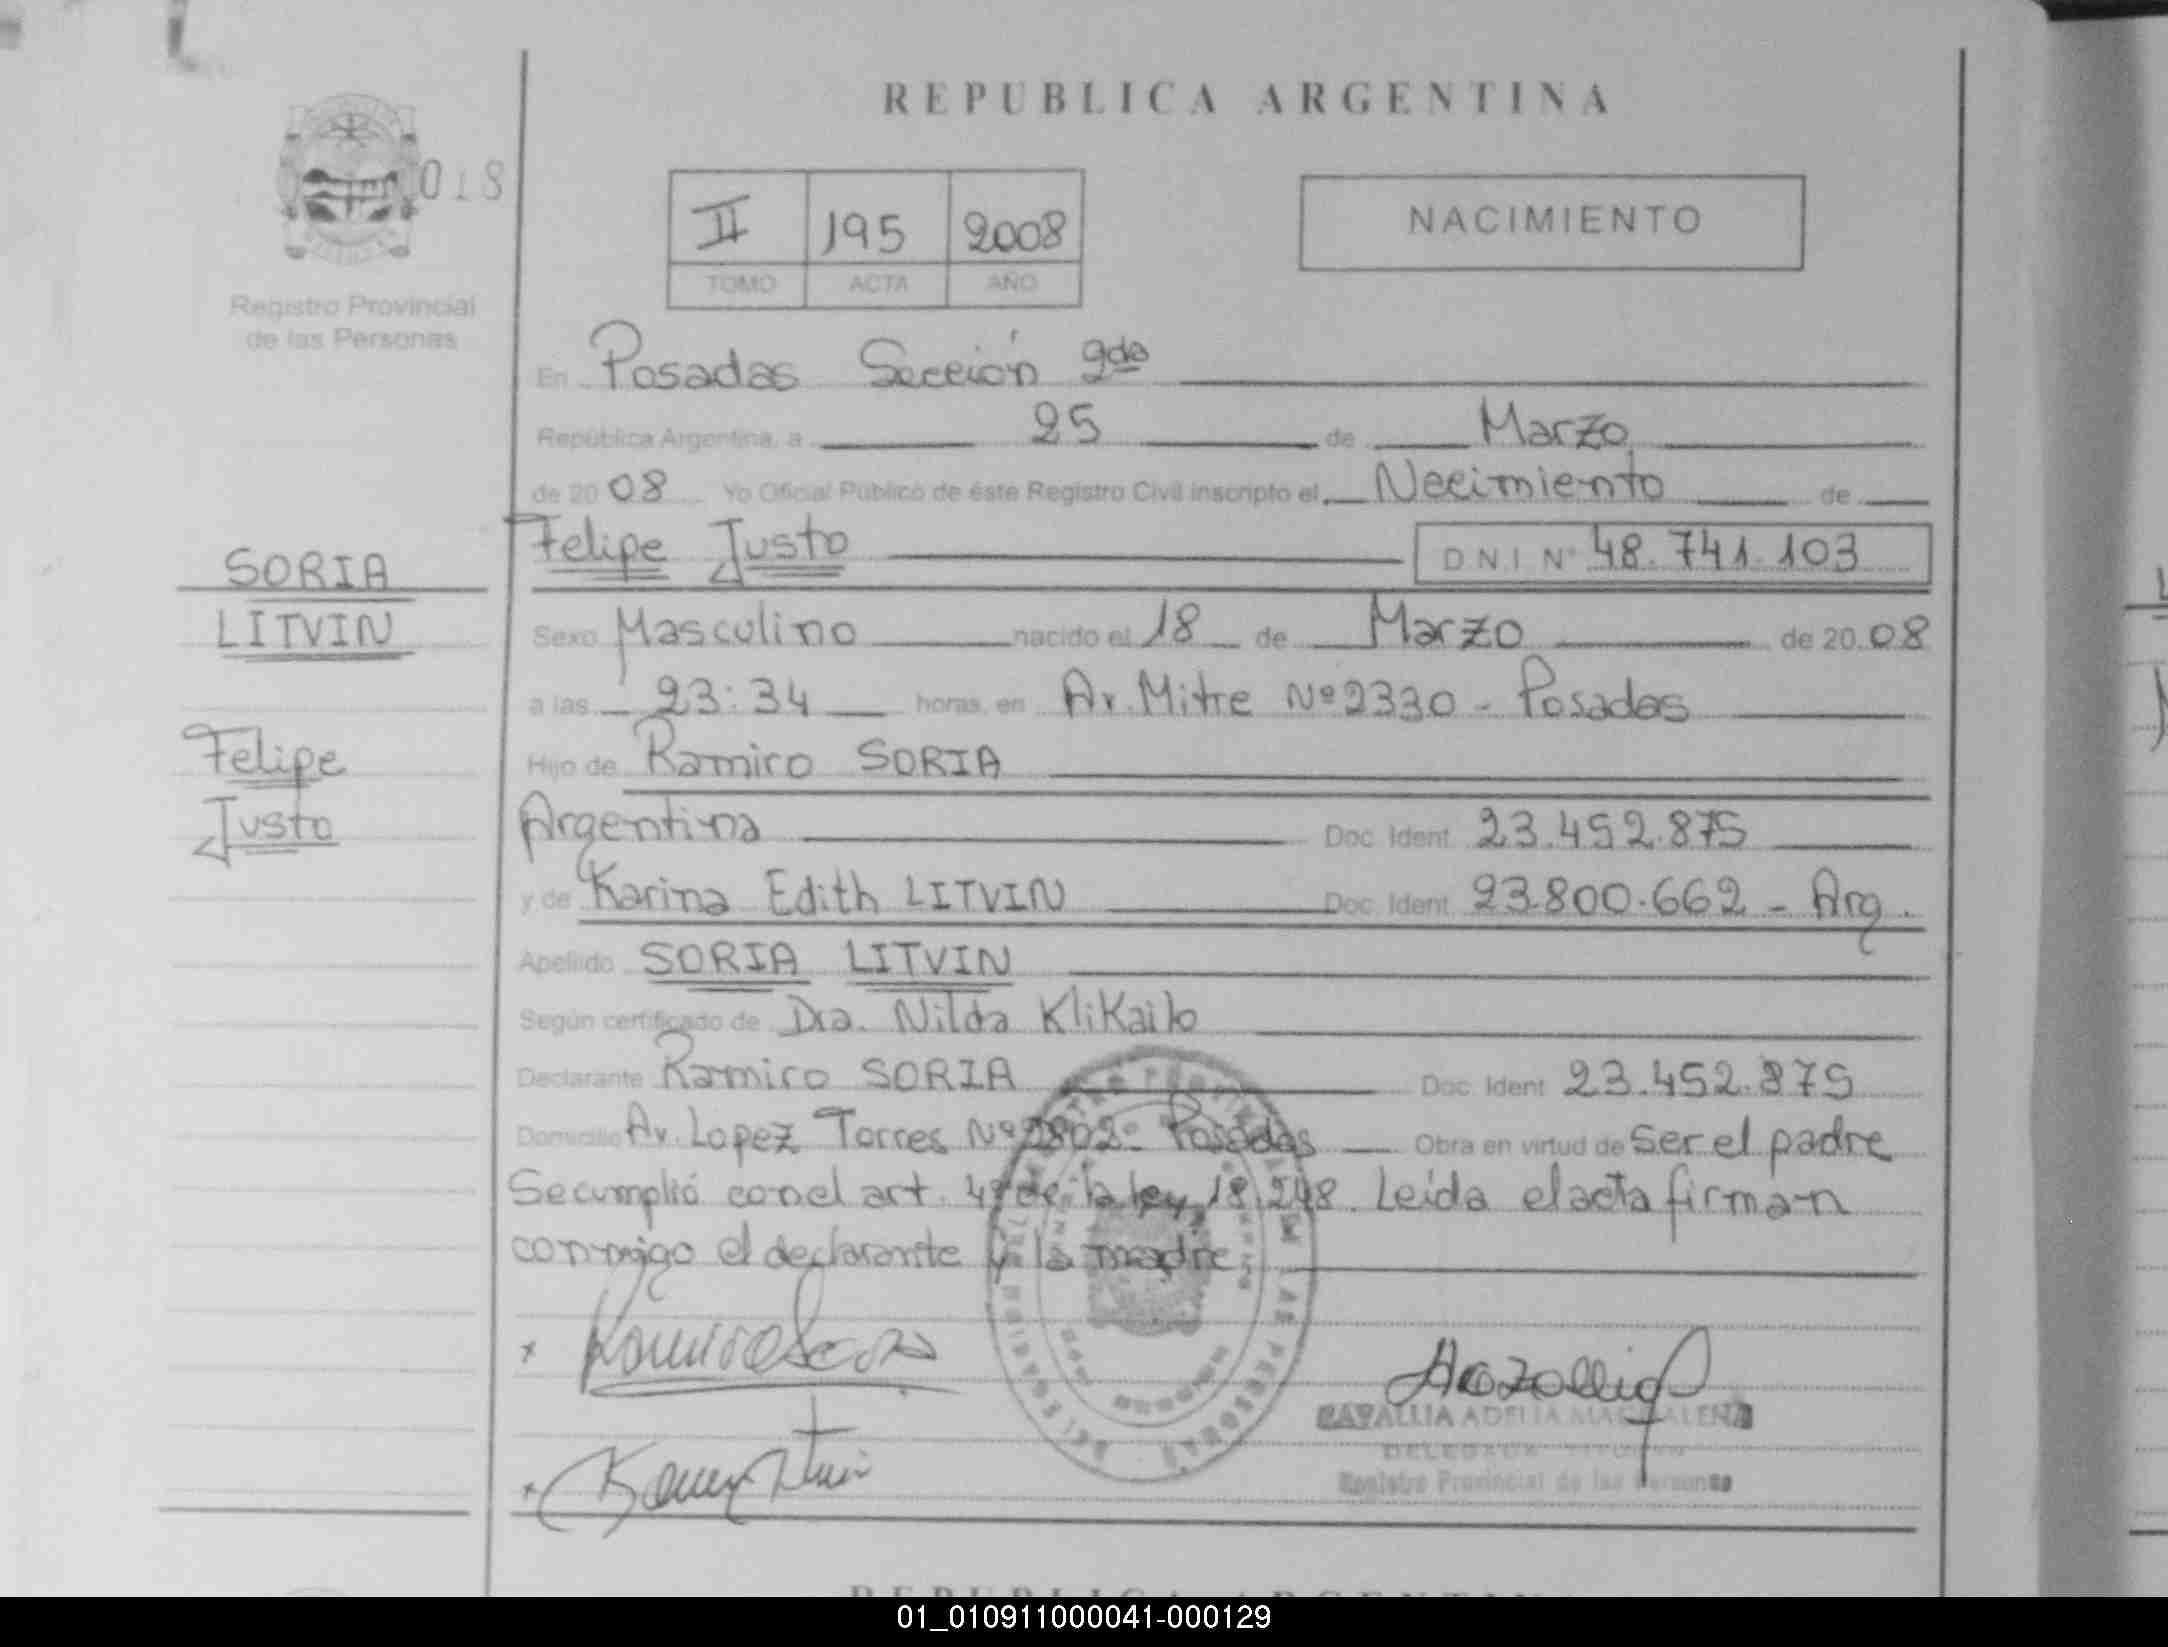 REPUBLICA ARGENTINA
018
II 195 2008
TOMO ACTA AÑO
NACIMIENTO
Registro Provincial
de las Personas
En Posadas Sección 2da
República Argentina, a 25 de Marzo
de 2008 Yo Oficial Público de éste Registro Civil inscripto el Necimiento de
Felipe Justo D.N.I. Nº 48.741.103
SORIA
LITVIN
Felipe
Justo
Sexo Masculino nacido el 18 de Marzo de 2008
a las 23:34 horas, en Av. Mitre Nº 2330 - Posadas
Hijo de Ramiro SORIA
Argentina Doc. Ident. 23.452.875
y de Karina Edith LITVIN Doc. Ident. 23.800.662 - Arg.
Apellido SORIA LITVIN
Según certificado de Dra. Nilda Klikailo
Declarante Ramiro SORIA Doc. Ident. 23.452.875
Domicilio Av. Lopez Torres Nº 2802 - Posadas Obra en virtud de Ser el padre
Se cumplió con el art. 4º de la ley 18.248. Leida el acta firman
conmigo el declarante y la madre
ADELIA MAGDALENA
DELEGADA TITULAR
Registro Provincial de las Personas
REPUBLICA ARGENTINA
01_010911000041-000129